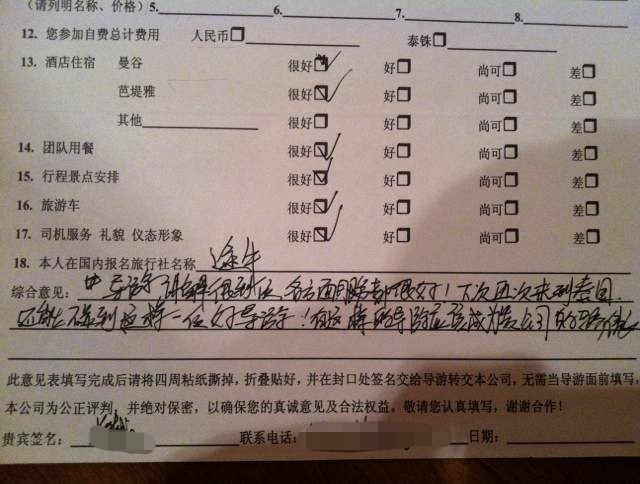 (请列明名称、价格) 5. 6. 7. 8.
12. 您参加自费总计费用 人民币□ 泰铢□
13. 酒店住宿 曼谷 很好☑ 好□ 尚可□ 差□
芭堤雅 很好☑ 好□ 尚可□ 差□
其他 很好□ 好□ 尚可□ 差□
14. 团队用餐 很好☑ 好□ 尚可□ 差□
15. 行程景点安排 很好☑ 好□ 尚可□ 差□
16. 旅游车 很好☑ 好□ 尚可□ 差□
17. 司机服务 礼貌 仪态形象 很好☑ 好□ 尚可□ 差□
18. 本人在国内报名旅行社名称 途牛
综合意见: 导游讲解很到位,各方面服务都很好!下次再次来到泰国
还能碰到这样一位好导游!有这样的导游应该成为贵公司的
此意见表填写完成后请将四周粘纸撕掉,折叠贴好,并在封口处签名交给导游转交本公司,无需当导游面前填写,
本公司为公正评判,并绝对保密,以确保您的真诚意见及合法权益。敬请您认真填写,谢谢合作!
贵宾签名: 联系电话: 日期: